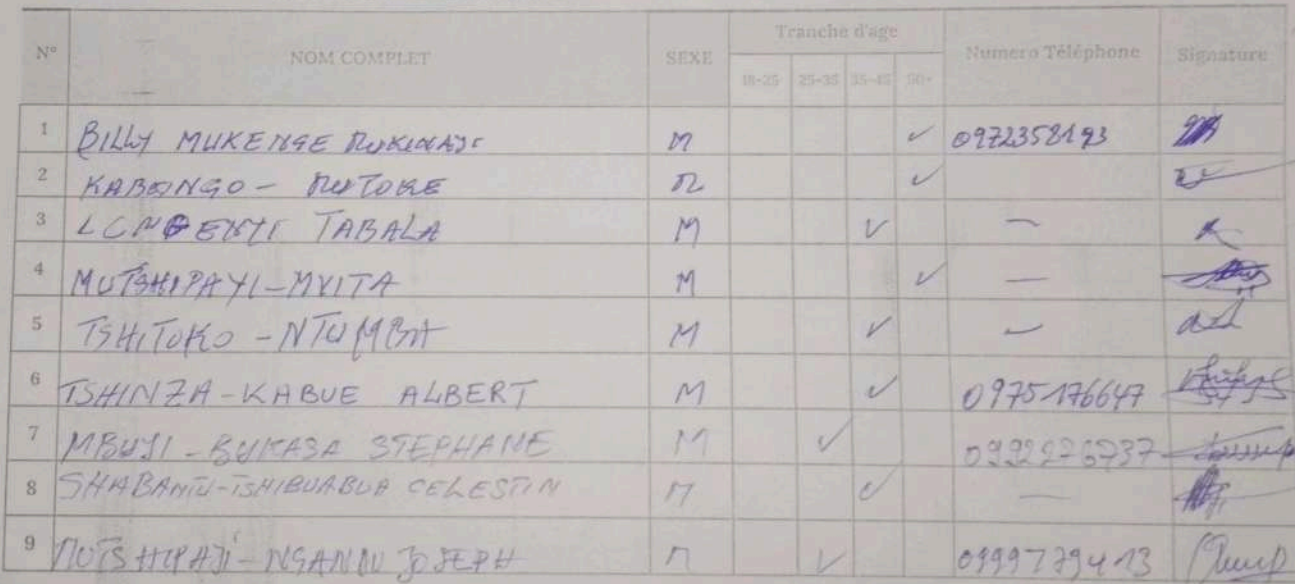 N° NOM COMPLET SEXE Tranche d'age Numero Téléphone Signature
18-25 25-35 35-45 50+
1 BILLY MUKENGE M ✓ 0972358193
2 KABONGO - M ✓
3 TABALA M ✓ —
4 MUTSHIPAYI-MVITA M ✓ —
5 TSHITOKO - NTUMBA M ✓ —
6 TSHINZA-KABUE ALBERT M ✓ 0975176647
7 MBUJI - BUKASA STEPHANE M ✓ 0992276737
8 SHABANTU-TSHIBUABUA CELESTIN M ✓ —
9 MUTSHIPAJI - NGANDU JOSEPH M ✓ 0999779413